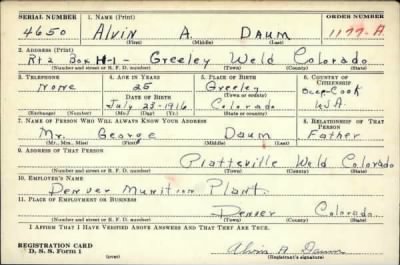 SERIAL NUMBER 1. NAME (Print) ORDER NUMBER
4650 Alvin A. Daum 1177-A
(First) (Middle) (Last)
2. ADDRESS (Print)
Rt 2 Box H-1 - Greeley Weld Colorado
(Number and street or R. F. D. number) (Town) (County) (State)
3. TELEPHONE 4. AGE IN YEARS 5. PLACE OF BIRTH 6. COUNTRY OF CITIZENSHIP
None 25 Greeley Occp-Cook
DATE OF BIRTH (Town or county)
July 23-1916 Colorado U.S.A.
(Exchange) (Number) (Mo.) (Day) (Yr.) (State or country)
7. NAME OF PERSON WHO WILL ALWAYS KNOW YOUR ADDRESS 8. RELATIONSHIP OF THAT PERSON
Mr. George Daum Father
(Mr., Mrs., Miss) (First) (Middle) (Last)
9. ADDRESS OF THAT PERSON
Platteville Weld Colorado
(Number and street or R. F. D. number) (Town) (County) (State)
10. EMPLOYER'S NAME
Denver Munition Plant.
11. PLACE OF EMPLOYMENT OR BUSINESS
Denver Colorado
(Number and street or R. F. D. number) (Town) (County) (State)
I AFFIRM THAT I HAVE VERIFIED ABOVE ANSWERS AND THAT THEY ARE TRUE.
REGISTRATION CARD
D. S. S. Form 1 Alvin A Daum
(Registrant's signature)